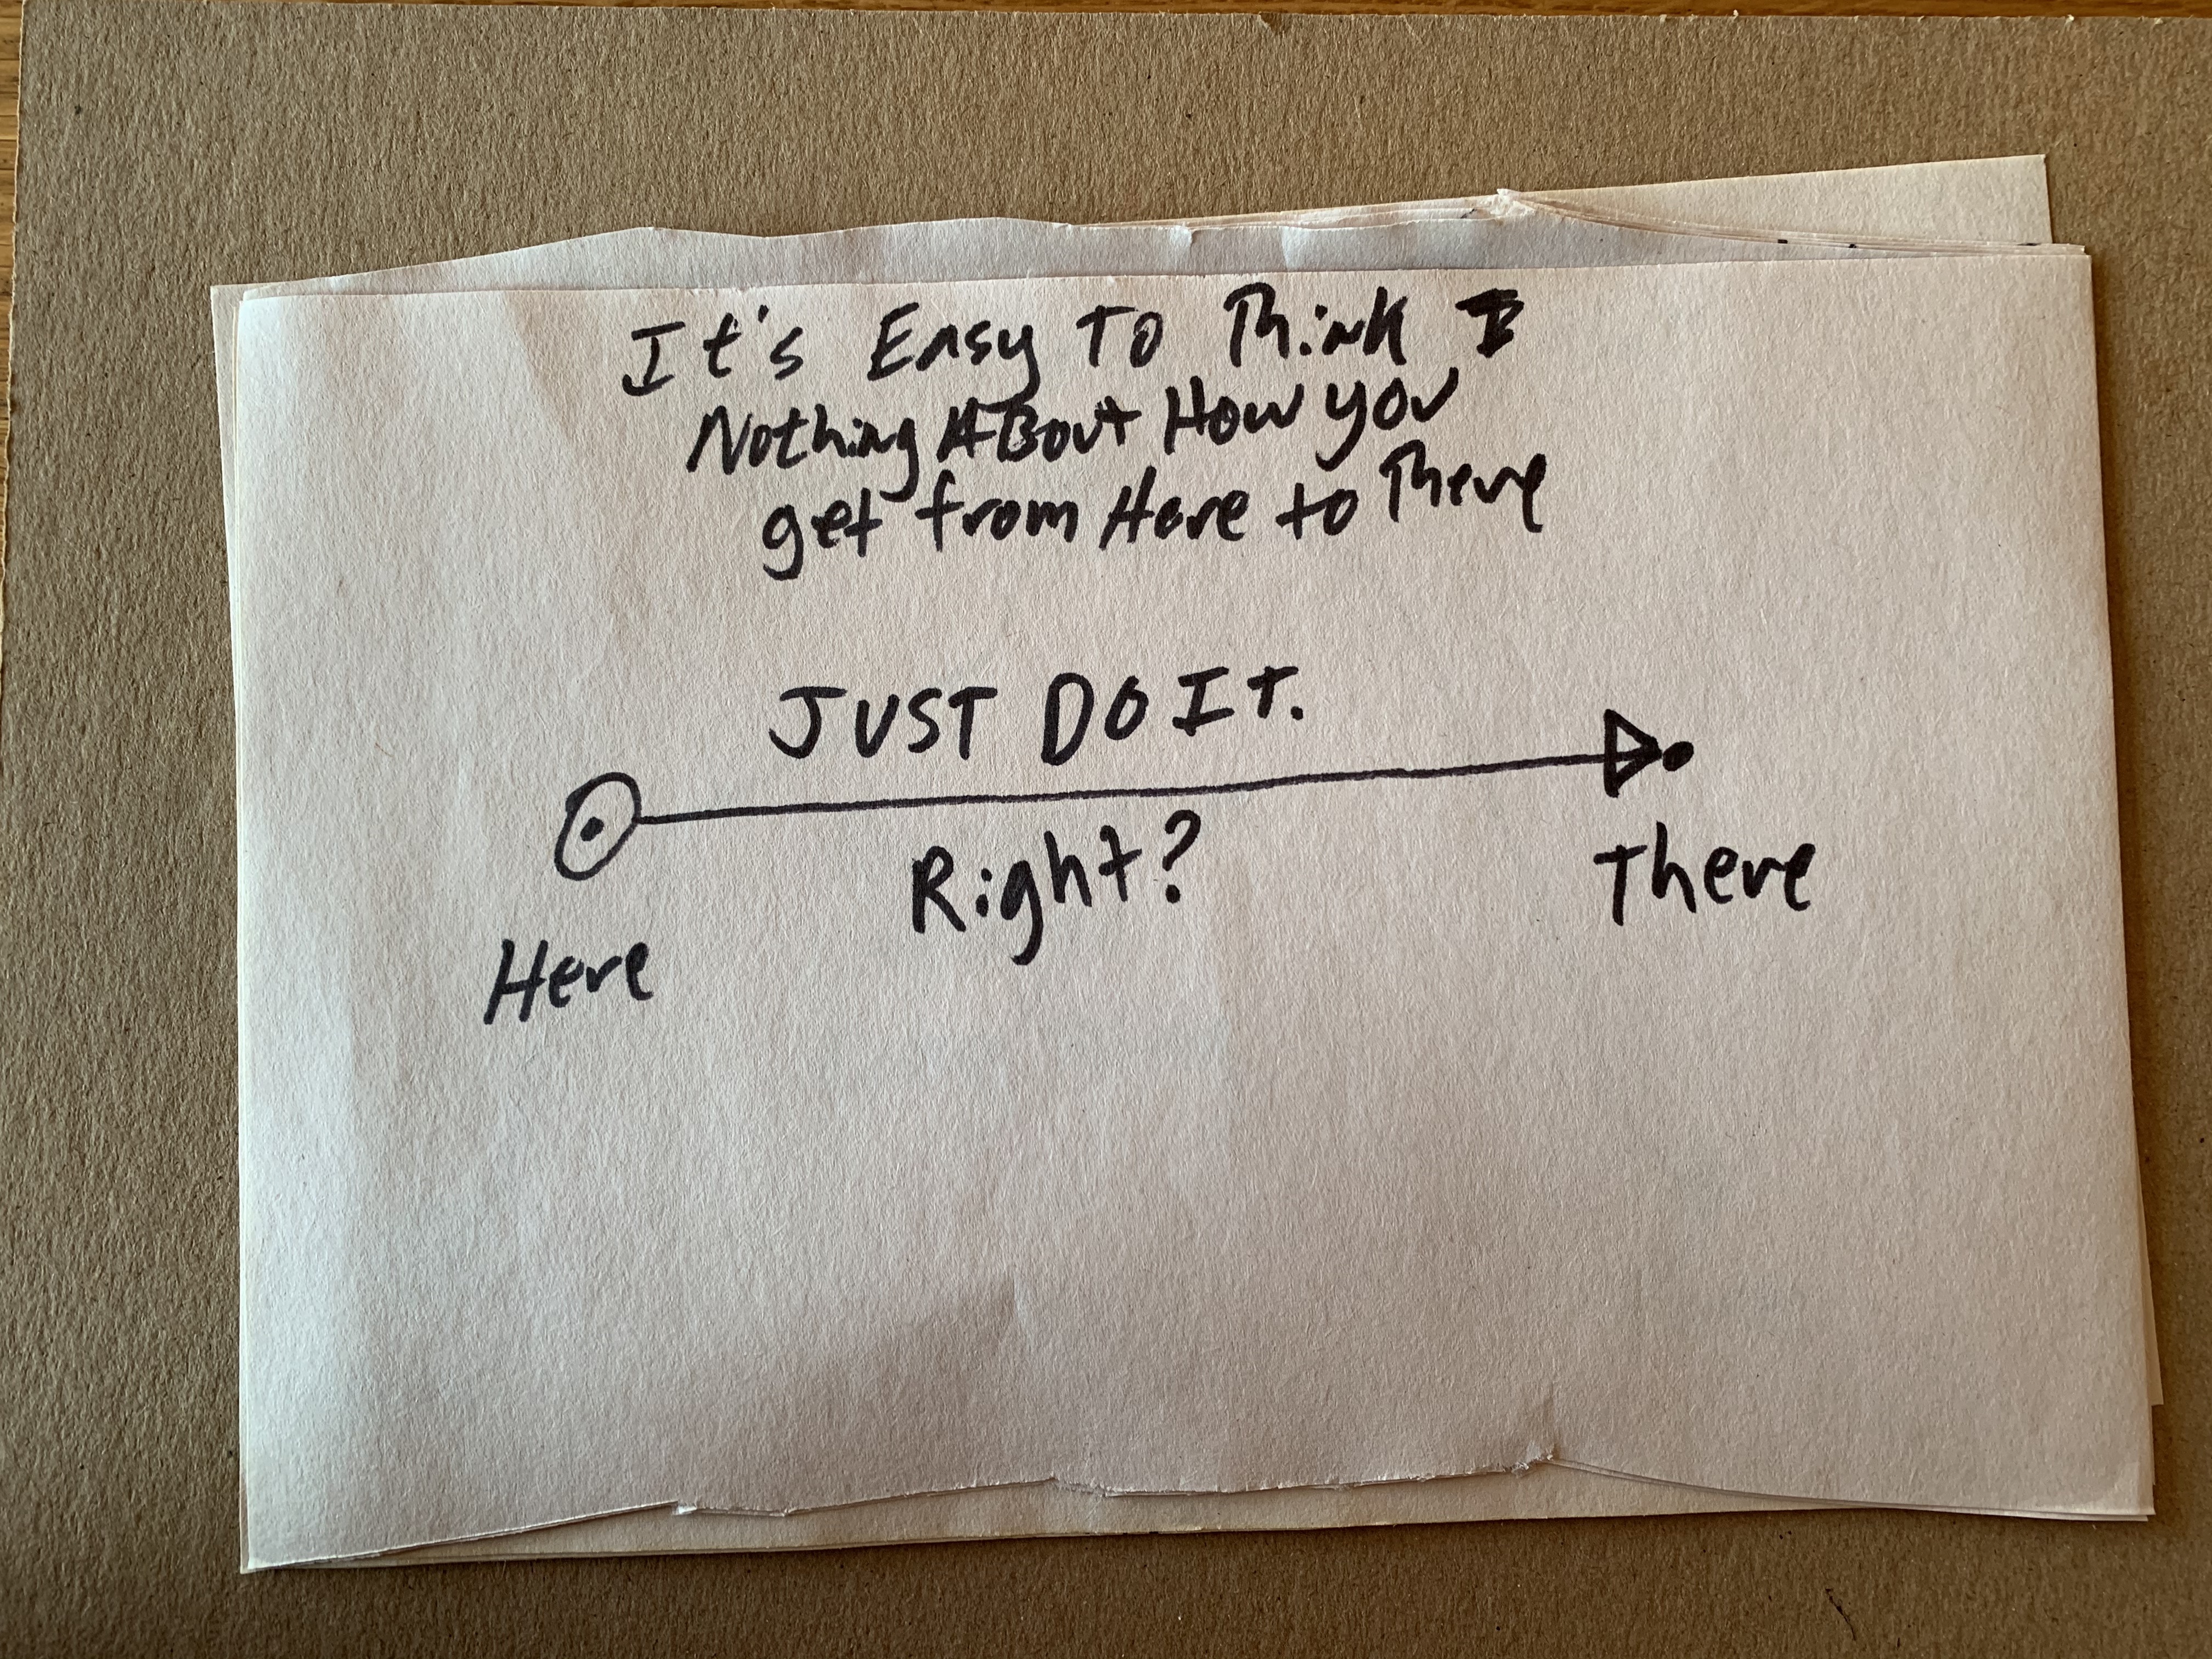 It's Easy To Think
Nothing About How you
get from Here to There
JUST DO It.
Right?
Here
There